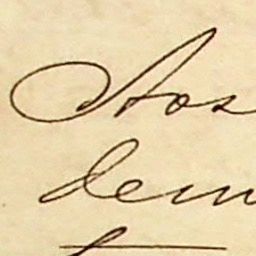 Aos
dem